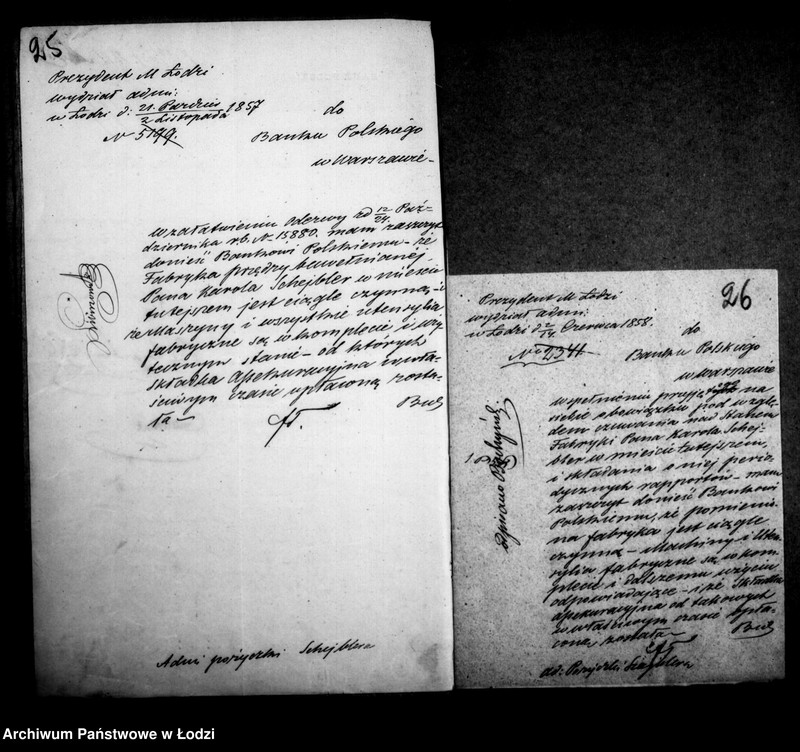 25
Prezydent M Łodzi
wydział adm:
w Łodzi d. 21. Paździer / 2 Listopada 1857
N 5199.
do
Banku Polskiego
w Warszawie
w załatwieniu Odezwy z d 12/24. Paź-
dziernika r.b. N. 15880. mam zaszczyt
donieść Bankowi Polskiemu – że
Fabryka przędzy bawełnianej
Pana Karola Schejbler w mieście
tutejszem jest ciągle czynną – i
że Maszyny i wszystkie utensylia
fabryczne są w komplecie i uży
tecznym stanie – od których
składka Assekuracyjna w wła-
ściwym czasie opłaconą zosta-
ła –
Adm pożyczki Schejblera
26
Prezydent M Łodzi
wydział adm:
w Łodzi d 2/14 Czerwca 1858.
do
Banku Polskiego
w Warszawie
w spełnieniu przyję na
siebie obowiązku pod wzglę-
dem czuwania nad stanem
Fabryki Pana Karola Schej-
bler w mieście tutejszem,
i składania o niej perio
dycznych rapportów – mam
zaszczyt donieść Bankowi
Polskiemu, że pomienio-
na fabryka jest ciągle
czynną – Machiny i Uten
sylia fabryczne są w kom
plecie i dalszemu użyciu
odpowiadające – i że składka
od takowych
w właściwym czasie opła-
coną została –
ad: Pożyczki Szajblera
Archiwum Państwowe w Łodzi